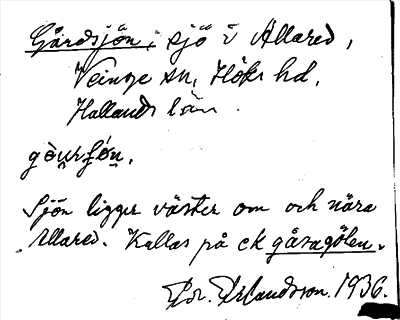 Gårdsjön, sjö i Allared,
Veinge sn, Höks hd,
Hallands län.
Sjön ligger väster om och nära
Allared. Kallas på ek gåsagölen.
Erlandsson. 1936.